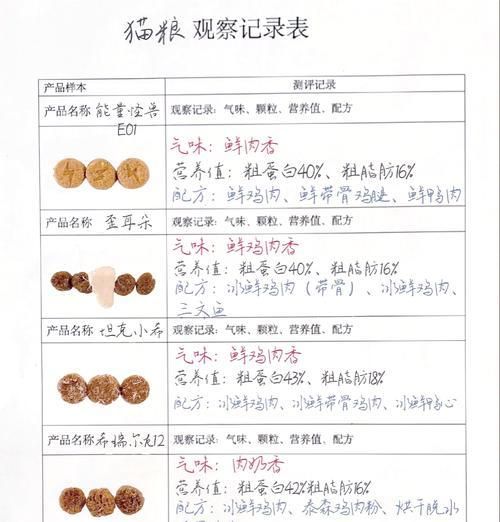 猫粮 观察记录表
产品样本 测评记录
产品名称 能量怪兽 E01 观察记录：气味、颗粒、营养值、配方
气味：鲜肉香
营养值：粗蛋白40%、粗脂肪16%
配方：鲜鸡肉、鲜带骨鸡腿、鲜鸭肉
产品名称 歪耳朵 观察记录：气味、颗粒、营养值、配方
气味：鲜鸡肉香
营养值：粗蛋白40%、粗脂肪16%
配方：冰鲜鸡肉（带骨）、冰鲜鸡肉、
三文鱼
产品名称 坦克小希 观察记录：气味、颗粒、营养值、配方
气味：鲜鸡肉香
营养值：粗蛋白43%、粗脂肪18%
配方：冰鲜鸡肉、冰鲜带骨鸡肉、冰鲜鸭心
产品名称 希瑞尔克12 观察记录：气味、颗粒、营养值、配方
气味：肉奶香
营养值：粗蛋白42%粗脂肪16%
配方：冰鲜鸡肉、泰森鸡肉粉、烘干脱水